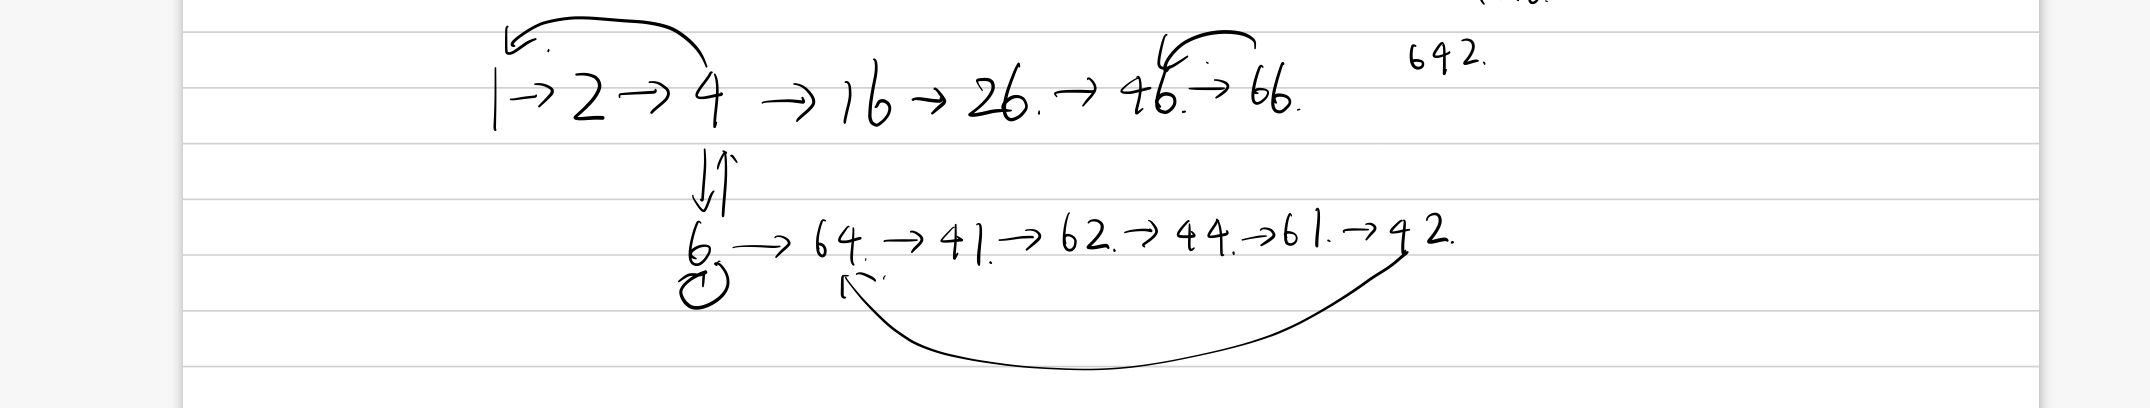 642.
1 → 2 → 4 → 16 → 26. → 46. → 66.
6 → 64. → 41. → 62. → 44. → 61. → 42.